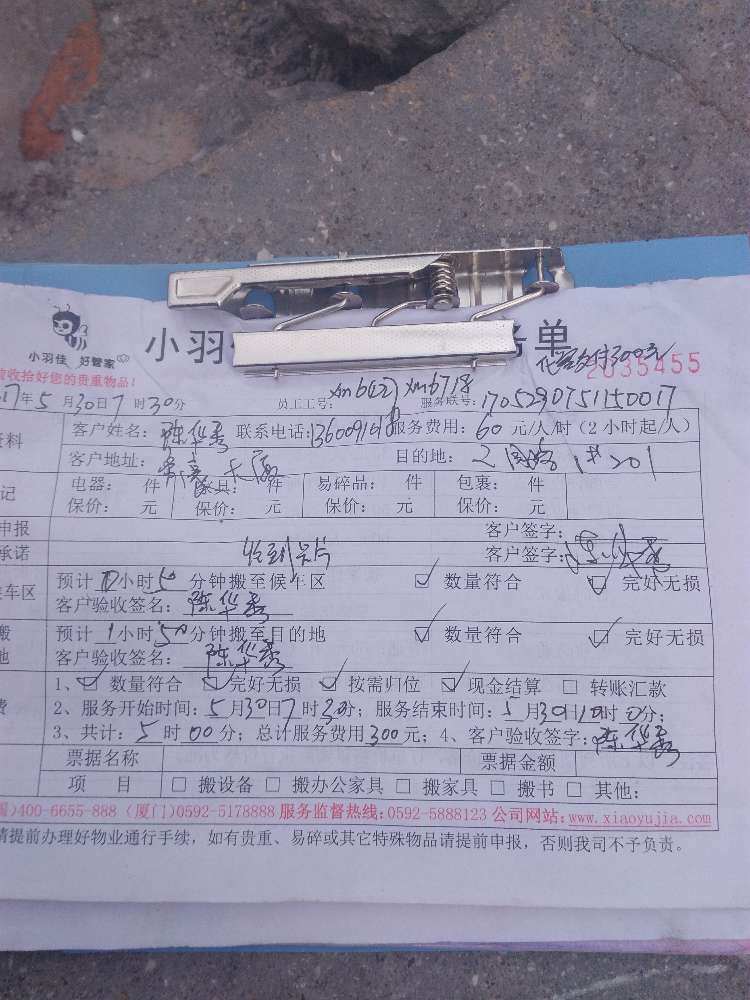 小羽佳 好管家
小羽 务单
代客交付300元
验收拾好您的贵重物品！
2035455
17年5月30日7时30分 员工工号: xm6122 xm6718 服务联号: 1705290751150017
资料 客户姓名: 陈华秀 联系电话: 服务费用: 60 元/人/时 (2小时起/人)
客户地址: 目的地: 1# 201
记 电器: 件 家具: 件 易碎品: 件 包裹: 件
保价: 元 保价: 元 保价: 元 保价: 元
申报 客户签字:
承诺 收到卡片 客户签字: 陈华秀
候车区 预计 0小时50分钟搬至候车区 ☑ 数量符合 ☑ 完好无损
客户验收签名: 陈华秀
搬 预计 1小时50分钟搬至目的地 ☑ 数量符合 ☑ 完好无损
地 客户验收签名: 陈华秀
1、☑ 数量符合 ☑ 完好无损 ☑ 按需归位 ☑ 现金结算 □ 转账汇款
费 2、服务开始时间: 5月30日7时30分; 服务结束时间: 5月30日10时0分;
3、共计: 5 时00分; 总计服务费用300元; 4、客户验收签字: 陈华秀
票据名称 票据金额
项 目 □ 搬设备 □ 搬办公家具 □ 搬家具 □ 搬书 □ 其他:
)400-6655-888 (厦门)0592-5178888 服务监督热线:0592-5888123 公司网站:www.xiaoyujia.com
请提前办理好物业通行手续，如有贵重、易碎或其它特殊物品请提前申报，否则我司不予负责。